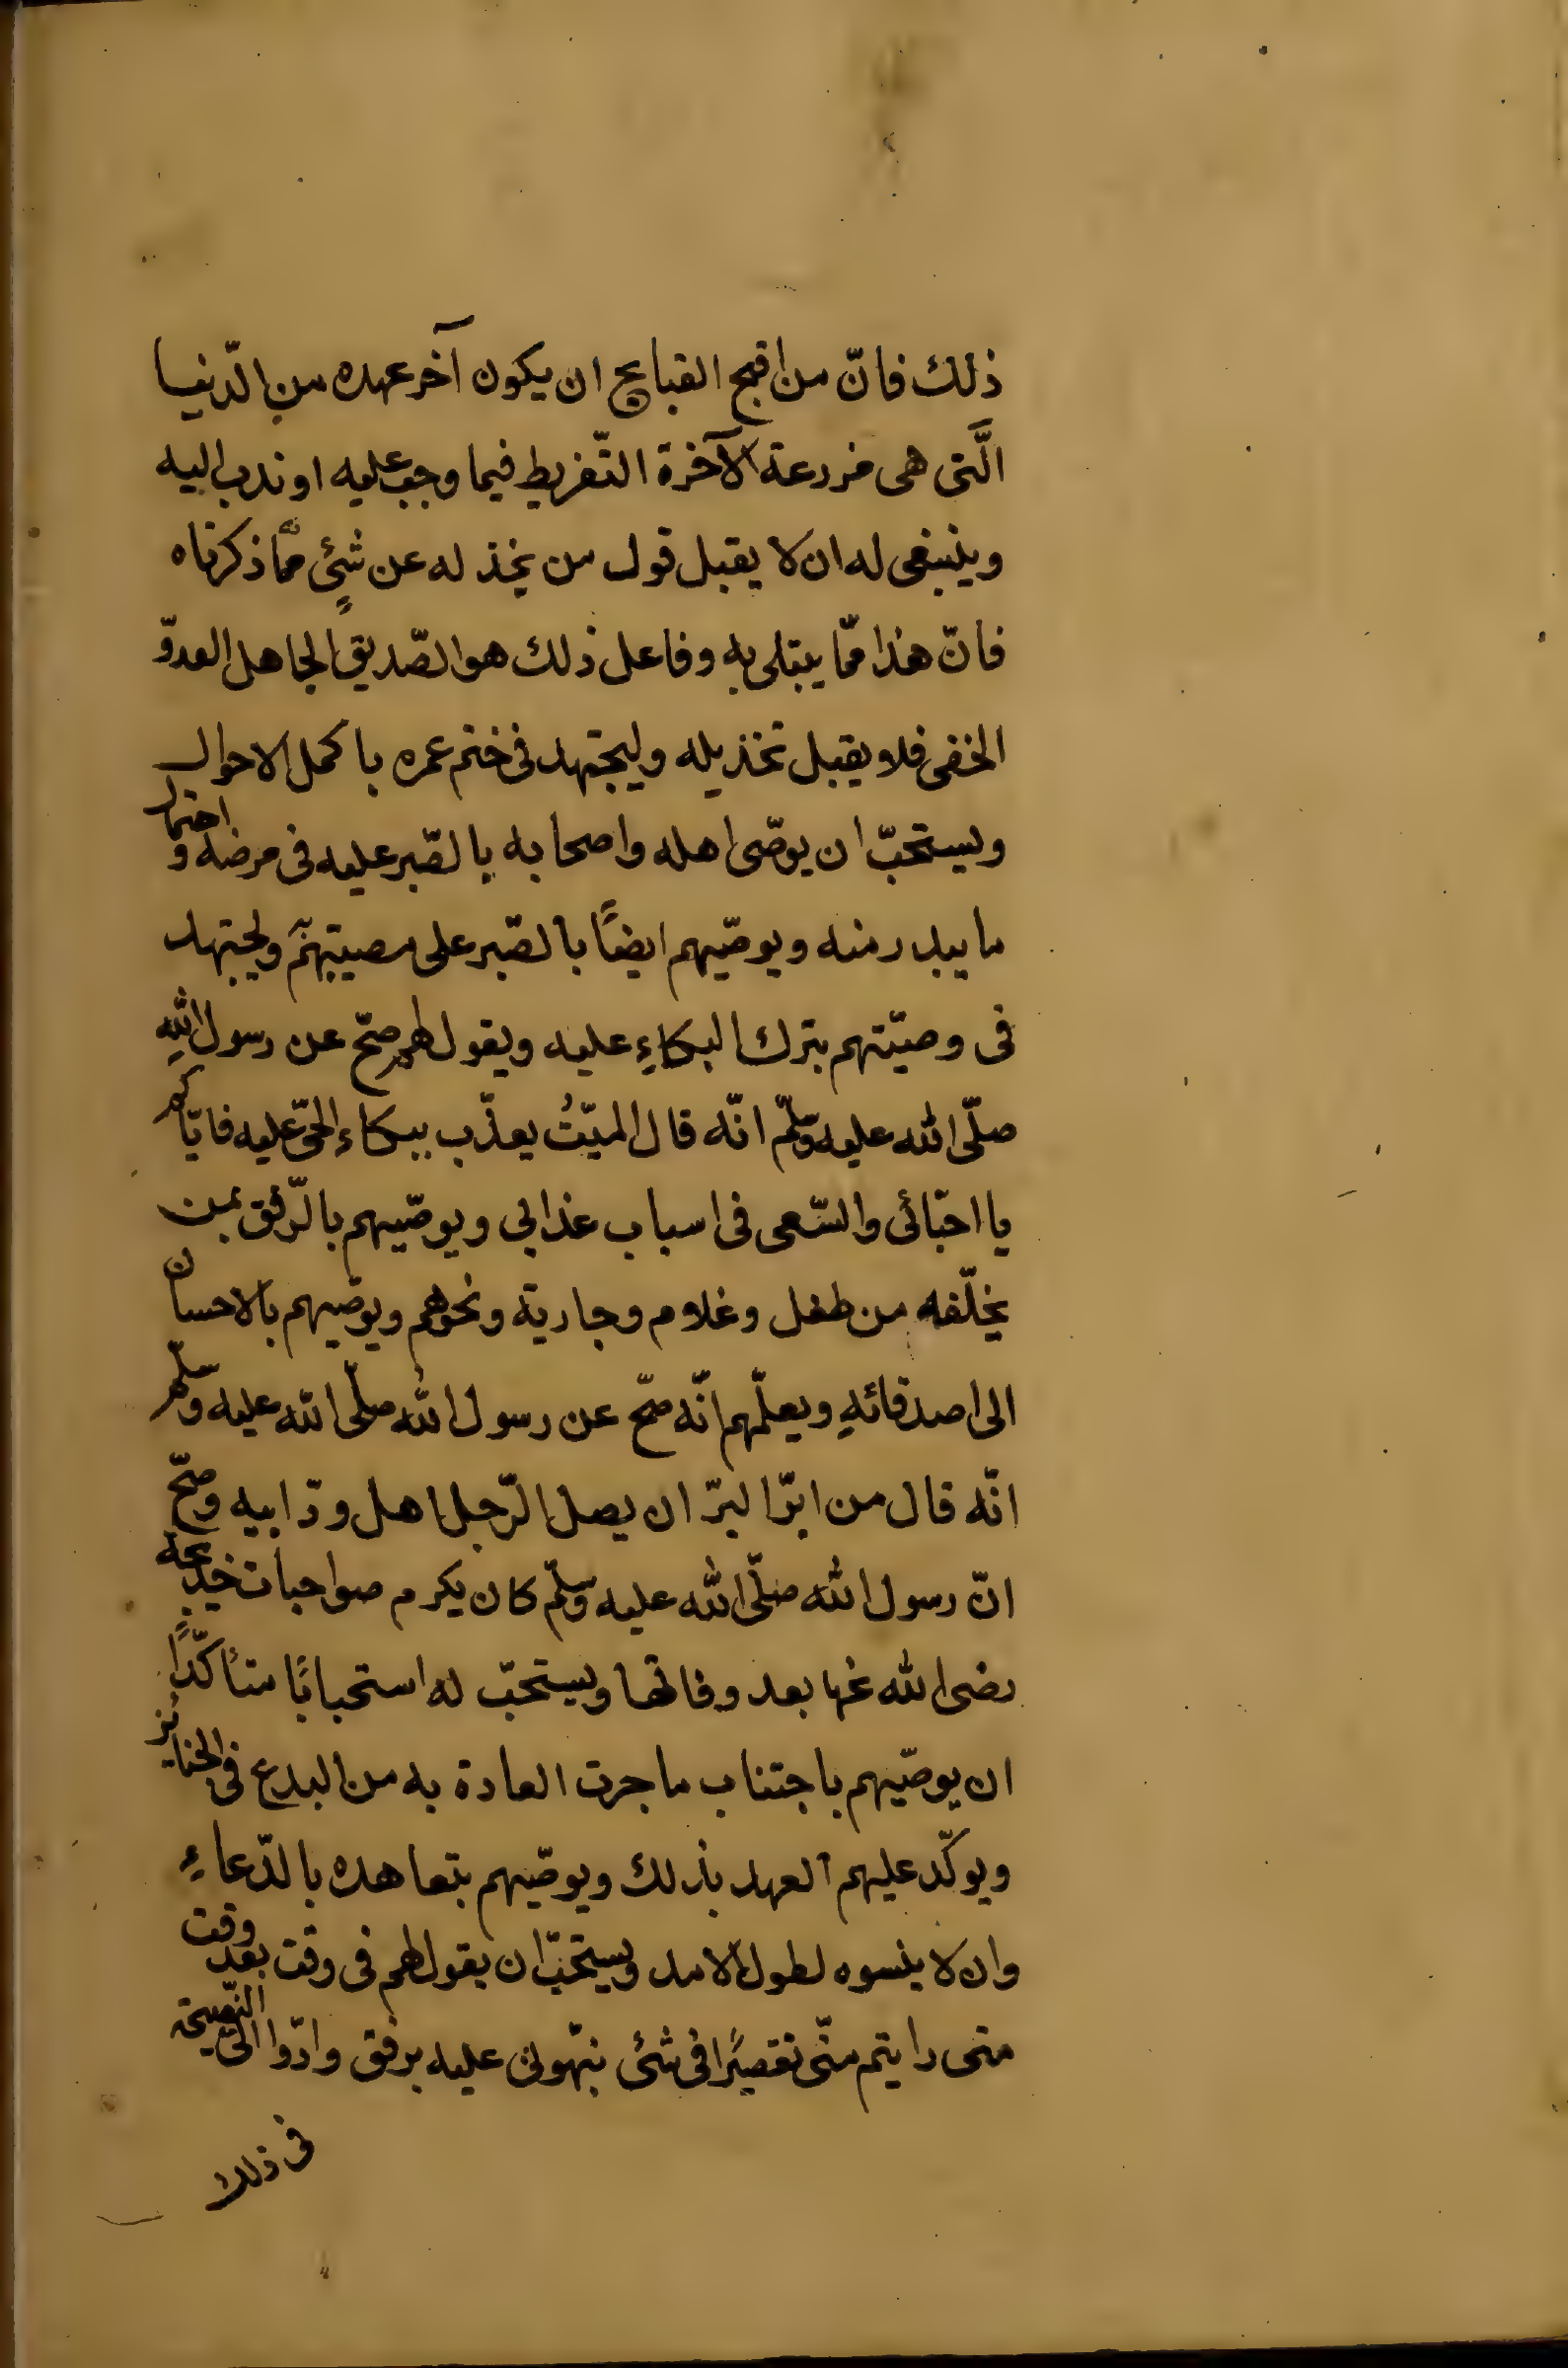 ذلك فانّ من اقبح القبايح ان يكون آخر عهده من الدّنيا
الَّتى هى مزرعة الآخرة التّفريط فيما وجب عليه او ندب اليه
وينبغى له ان لا يقبل قول من يخذله عن شئٍ ممّا ذكرناه
فانّ هذا ممّا يبتلى به وفاعل ذلك هو الصّديق الجاهل العدوّ
الخفى فلا يقبل تخذيله وليجتهد فى ختم عمره باكمل الاحوال
ويستحبّ ان يوصّى اهله واصحابه بالصّبر عليه فى مرضه واحتمال
ما يبدر منه ويوصّيهم ايضًا بالصّبر على مصيبتهم وليجتهد
فى وصيّتهم بترك البكاءِ عليه ويقول لهم صحّ عن رسول اللهِ
صلّى الله عليه وسلّم انّه قال الميّتُ يعذّب ببكاء الحىّ عليه فايّاكم
يا احبّائى والسّعى فى اسباب عذابي ويوصّيهم بالرّفق بمن
يخلّفه من طفل وغلام وجارية ونحوهم ويوصّيهم بالاحسان
الى اصدقائهِ ويعلّمهم انّه صحّ عن رسول الله صلّى الله عليه وسلّم
انّه قال من ابرّ البرّ ان يصل الرّجل اهل ودّ ابيه وصحّ
انّ رسول الله صلّى الله عليه وسلّم كان يكرم صواحبات خديجة
رضى الله عنها بعد وفاتها ويستحبّ له استحبابًا متأكّدًا
ان يوصّيهم باجتناب ما جرت العادة به من البدع فى الجنايز
ويوكّد عليهم العهد بذلك ويوصّيهم بتعاهده بالدّعاءِ
وان لا ينسوه لطول الامد ويستحبّ ان يقول لهم فى وقت بعد وقت
متى رايتم منّى تقصيرًا فى شئ نبّهونى عليه برفق وادّوا الىّ النّصيحة
فى ذلك